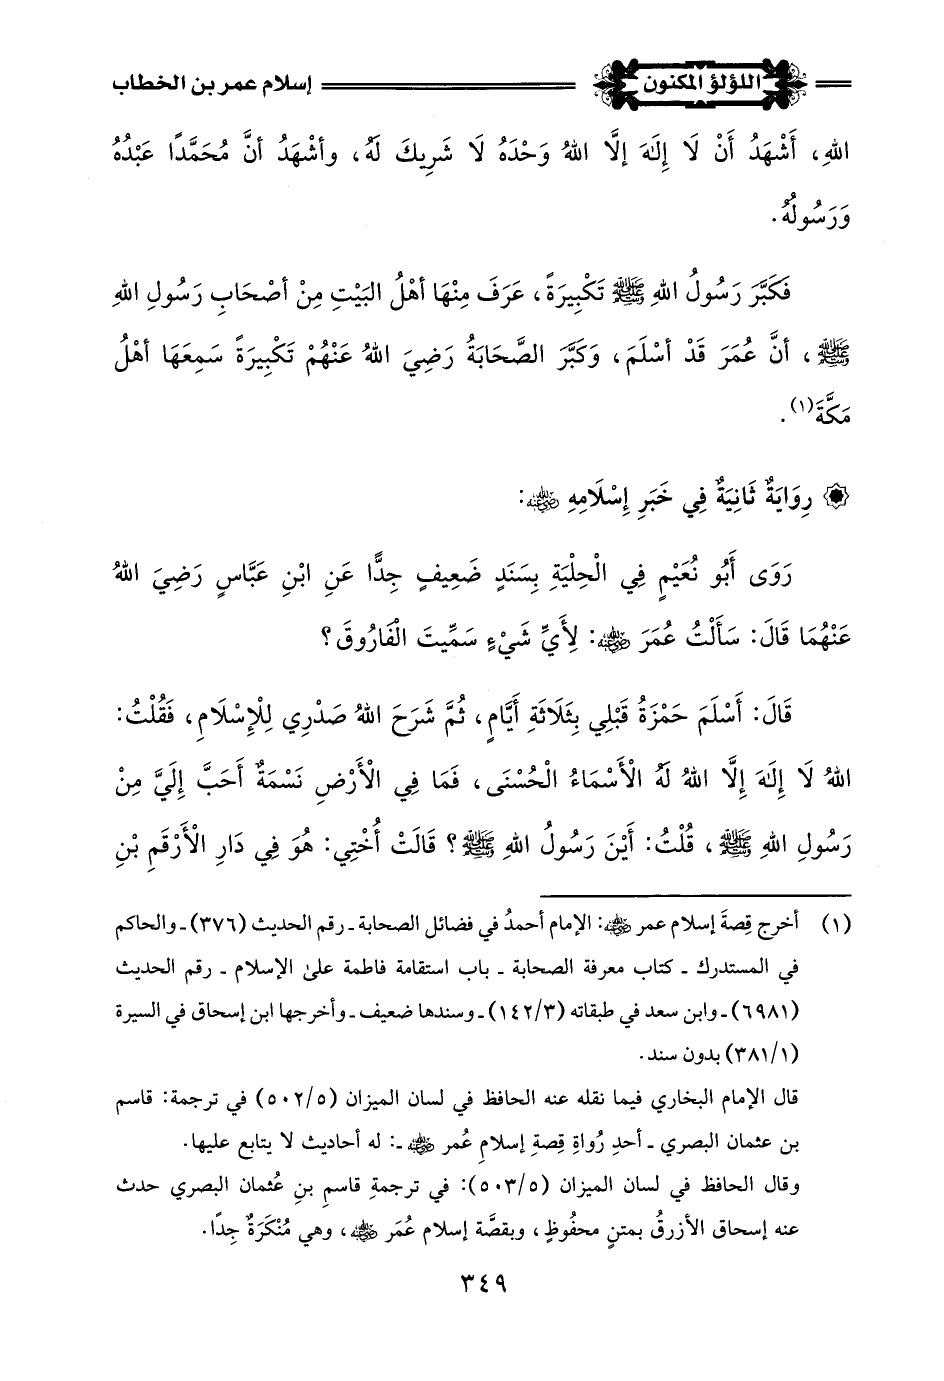 اللؤلؤ المكنون إسلام عمر بن الخطاب
اللهِ، أَشْهَدُ أَنْ لَا إِلَهَ إلَّا اللهُ وَحْدَهُ لَا شَرِيكَ لَهُ، وأشْهَدُ أنَّ مُحَمَّدًا عَبْدُهُ
وَرَسُولُهُ.
فَكَبَّرَ رَسُولُ اللهِ ﷺ تَكْبِيرَةً، عَرَفَ مِنْهَا أهْلُ البَيْتِ مِنْ أصْحَابِ رَسُولِ اللهِ
ﷺ، أنَّ عُمَرَ قَدْ أسْلَمَ، وَكَبَّرَ الصَّحَابَةُ رَضِيَ اللهُ عَنْهُمْ تَكْبِيرَةً سَمِعَهَا أهْلُ
مَكَّةَ(١).
۞ رِوَايَةٌ ثَانِيَةٌ فِي خَبَرِ إِسْلَامِهِ ﵁:
رَوَى أَبُو نُعَيْمٍ فِي الْحِلْيَةِ بِسَنَدٍ ضَعِيفٍ جِدًّا عَنِ ابْنِ عَبَّاسٍ رَضِيَ اللهُ
عَنْهُمَا قَالَ: سَأَلْتُ عُمَرَ ﵁: لِأَيِّ شَيْءٍ سَمِّيتَ الْفَارُوقَ؟
قَالَ: أَسْلَمَ حَمْزَةُ قَبْلِي بِثَلَاثَةِ أَيَّامٍ، ثُمَّ شَرَحَ اللهُ صَدْرِي لِلْإِسْلَامِ، فَقُلْتُ:
اللهُ لَا إِلَهَ إِلَّا اللهُ لَهُ الْأَسْمَاءُ الْحُسْنَى، فَمَا فِي الْأَرْضِ نَسْمَةٌ أَحَبَّ إِلَيَّ مِنْ
رَسُولِ اللهِ ﷺ، قُلْتُ: أَيْنَ رَسُولُ اللهِ ﷺ؟ قَالَتْ أُخْتِي: هُوَ فِي دَارِ الْأَرْقَمِ بْنِ
(١) أخرج قِصةَ إسلام عمر ﵁: الإمام أحمدُ في فضائل الصحابة ـ رقم الحديث (٣٧٦) ـ والحاكم
في المستدرك ـ كتاب معرفة الصحابة ـ باب استقامة فاطمة على الإسلام ـ رقم الحديث
(٦٩٨١) ـ وابن سعد في طبقاته (٣/ ١٤٢) ـ وسندها ضعيف ـ وأخرجها ابن إسحاق في السيرة
(١/ ٣٨١) بدون سند.
قال الإمام البخاري فيما نقله عنه الحافظ في لسان الميزان (٥/ ٥٠٢) في ترجمة: قاسم
بن عثمان البصري ـ أحدِ رُواةِ قِصةِ إسلامِ عُمر ﵁ ـ: له أحاديث لا يتابع عليها.
وقال الحافظ في لسان الميزان (٥/ ٥٠٣): في ترجمةِ قاسمِ بنِ عُثمان البصري حدث
عنه إسحاق الأزرقُ بمتنٍ محفُوظٍ، وبقصَّة إسلام عُمَر ﵁، وهي مُنْكَرَةٌ جِدًا.
٣٤٩